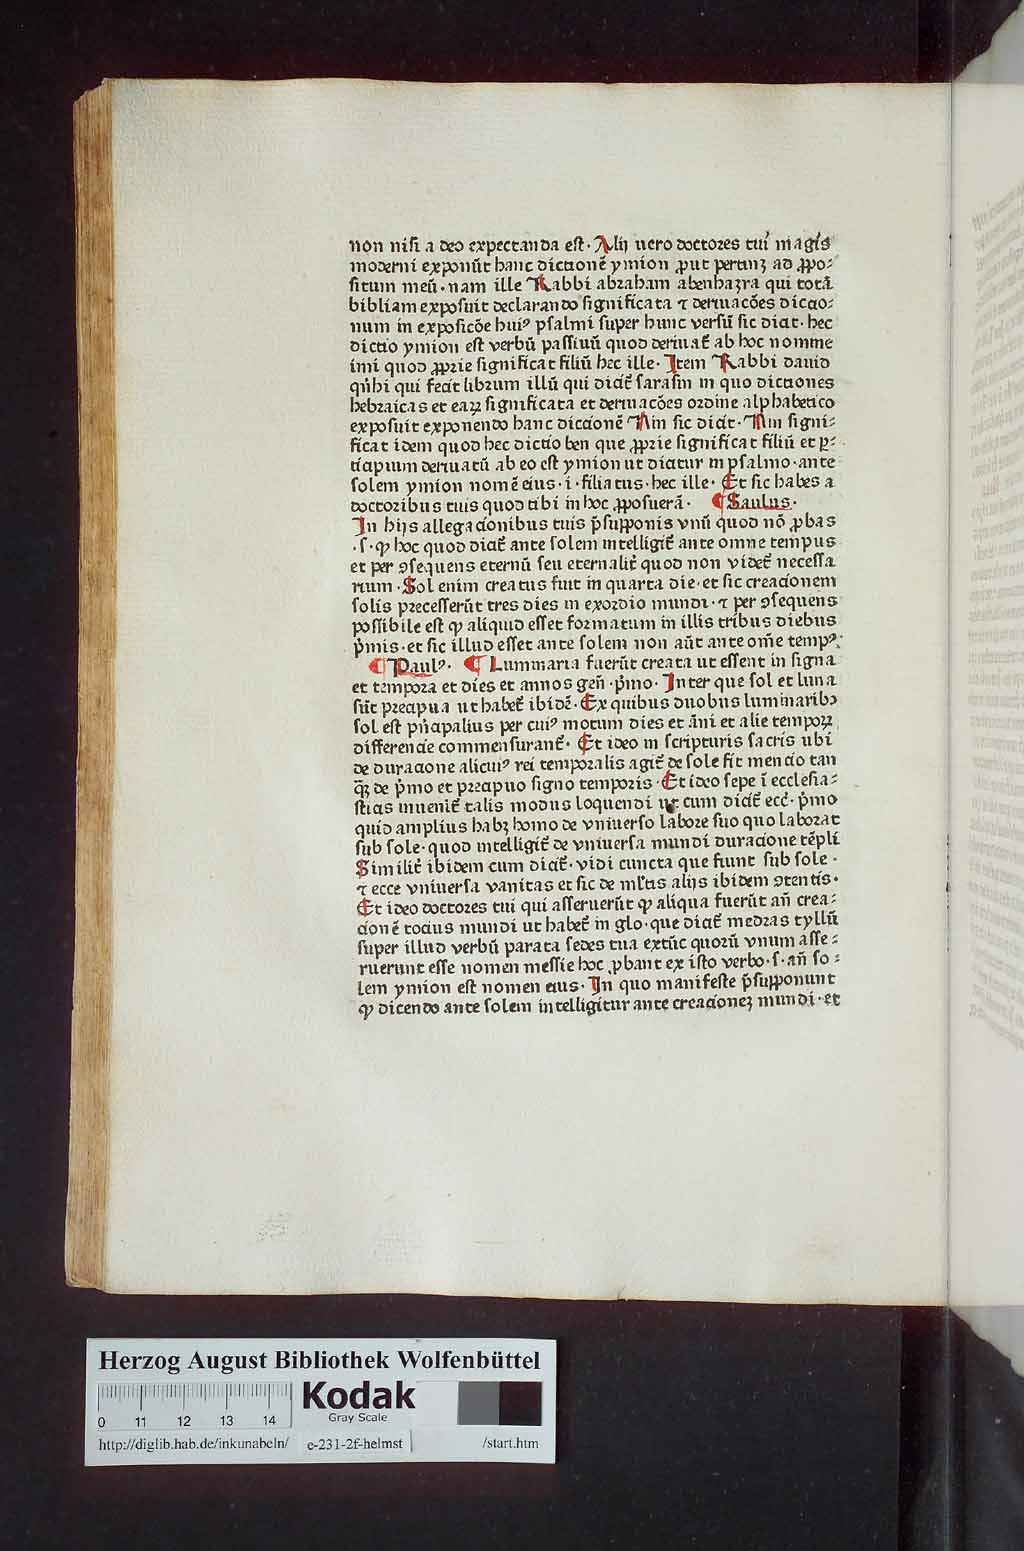 non nisi a deo expectanda est· Alij uero doctores tui magis
moderni exponūt hanc dictionē ymion ꝓut pertinꝫ ad ꝓpo⸗
situm meū· nam ille Rabbi abraham abenhazra qui totā
bibliam exposuit declarando significata ⁊ deriuacōes dictio⸗
num in exposicōe huiꝰ psalmi super hunc versū sic dicit· hec
dictio ymion est verbū passiuū quod deriuat᷑ ab hoc nomine
imi quod ꝓprie significat filiū hec ille· Item Rabbi dauid
qm̄hi qui fecit librum illū qui dicit᷑ sarasin in quo dictiones
hebraicas et eaꝝ significata et deriuacōes ordine alphabetico
exposuit exponendo hanc diccionē Nin sic dicit· Nin signi⸗
ficat idem quod hec dictio ben que ꝓprie significat filiū et p̲⸗
ticipium deriuatū ab eo est ymion ut dicitur in psalmo· ante
solem ymion nomē eius· i· filiatus· hec ille· Et sic habes a
doctoribus tuis quod tibi in hoc ꝓposuerā· ¶ Saulus·
In hijs allegacionibus tuis p̄supponis vnū quod nō ꝓbas
·s· ꝙ hoc quod dicit᷑ ante solem intelligit᷑ ante omne tempus
et per ꝯsequens eternū seu eternalit᷑ quod non videt᷑ necessa
rium· Sol enim creatus fuit in quarta die· et sic creacionem
solis precesserūt tres dies in exordio mundi· ⁊ per ꝯsequens
possibile est ꝙ aliquid esset formatum in illis tribus diebus
p̄mis· et sic illud esset ante solem non aūt ante om̄e tempꝰ·
¶ Paulꝰ· ¶ Luminaria fuerūt creata ut essent in signa
et tempora et dies et annos gen̄· p̄mo· Inter que sol et luna
sūt precipua ut habet᷑ ibidē· Ex quibus duobus luminaribꝰ
sol est pn̄cipalius per cuiꝰ motum dies et āni et alie tempoꝝ
differencie commensurant᷑· Et ideo in scripturis sacris ubi
de duracione alicuiꝰ rei temporalis agit᷑ de sole fit mencio tan
q̄ꝫ de p̄mo et precipuo signo temporis· Et ideo sepe ī ecclesia⸗
sticis inuenit᷑ talis modus loquendi ut cum dicit᷑ ecc̄· p̄mo
quid amplius habꝫ homo de vniuerso labore suo quo laborat
sub sole· quod intelligit᷑ de vniuersa mundi duracione tēpli
Similit᷑ ibidem cum dicit᷑· vidi cuncta que fiunt sub sole·
⁊ ecce vniuersa vanitas et sic de ml̄tis alijs ibidem ꝯtentis·
Et ideo doctores tui qui asseruerūt ꝙ aliqua fuerūt an̄ crea⸗
cionē tocius mundi ut habet᷑ in glo· que dicit᷑ medras tyllū
super illud verbū parata sedes tua extūc quorū vnum asse⸗
ruerunt esse nomen messie hoc ꝓbant ex isto verbo· s· an̄ so⸗
lem ymion est nomen eius· In quo manifeste p̄supponunt
ꝙ dicendo ante solem intelligitur ante creacioneꝫ mundi· et
Herzog August Bibliothek Wolfenbüttel
Kodak
Gray Scale
0 11 12 13 14
http://diglib.hab.de/inkunabeln/ e-231-2f-helmst /start.htm